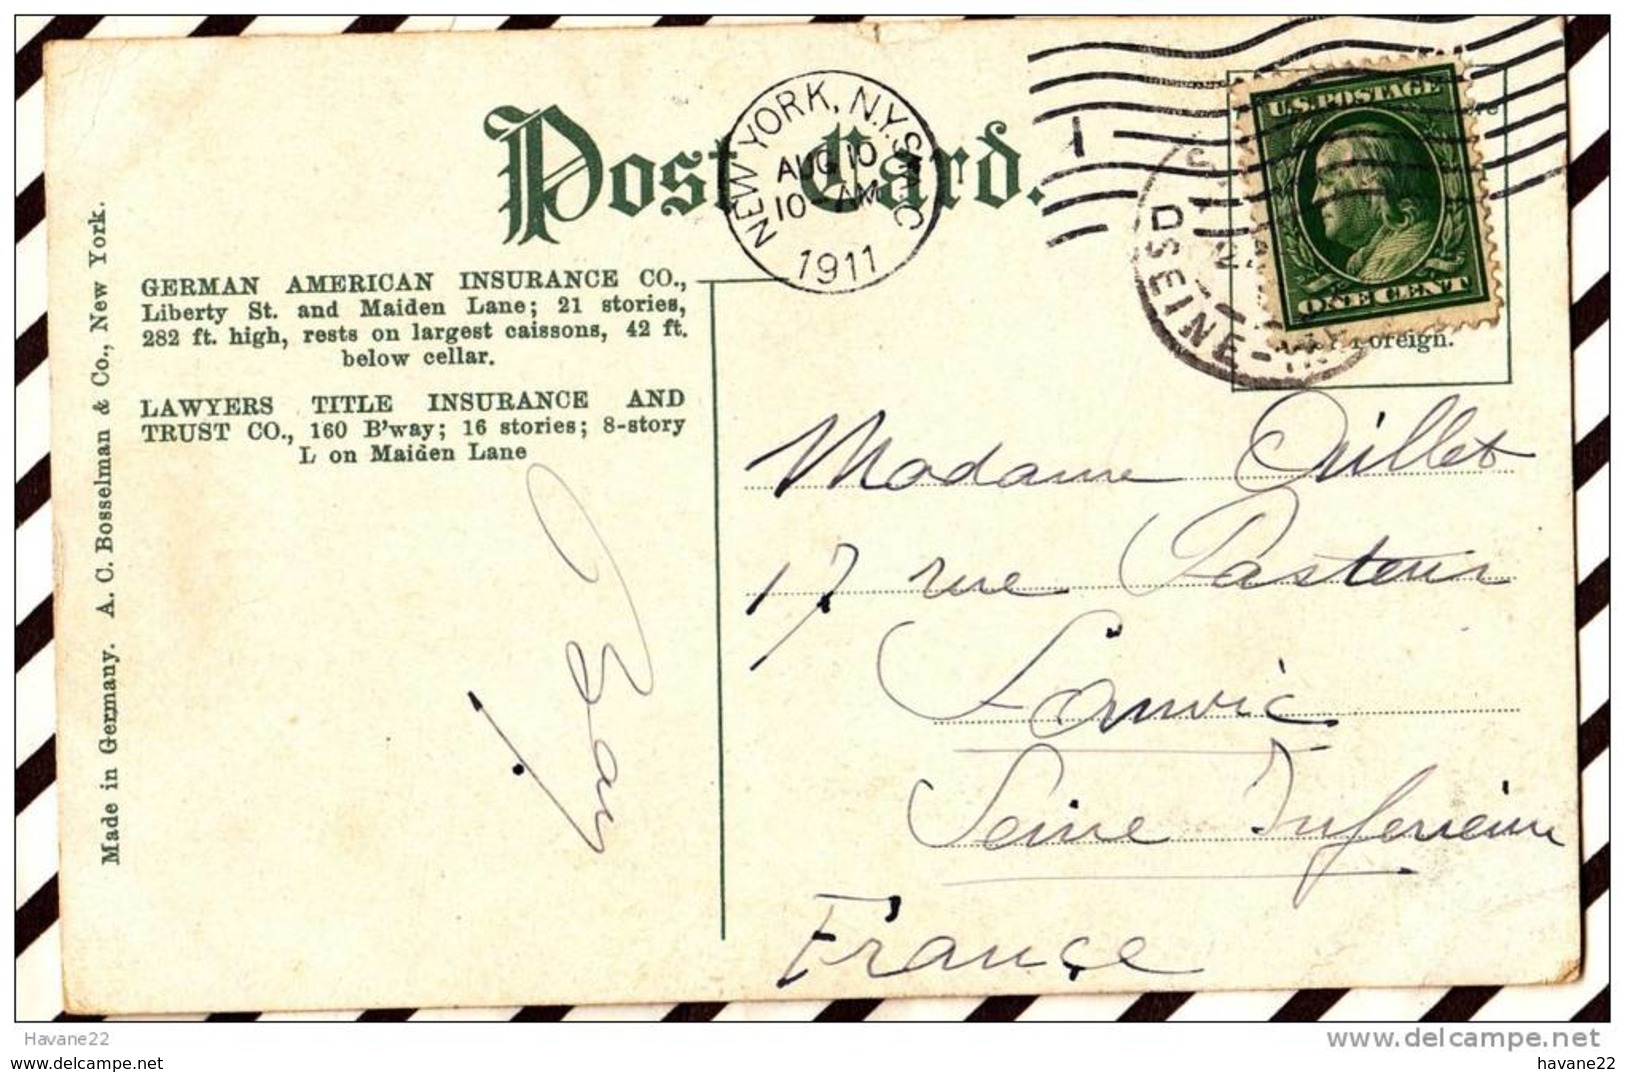 Post Card.
NEW YORK, N.Y. STA. C
AUG 10
10-AM
1911
1
U.S. POSTAGE
ONE CENT
Foreign.
SEINE-
GERMAN AMERICAN INSURANCE CO.,
Liberty St. and Maiden Lane; 21 stories,
282 ft. high, rests on largest caissons, 42 ft.
below cellar.
LAWYERS TITLE INSURANCE AND
TRUST CO., 160 B'way; 16 stories; 8-story
L on Maiden Lane
Made in Germany. A. C. Bosselman & Co., New York.
Madame Quillet
17 rue Pasteur
Sanvic
Seine Inferieure
France
Havane22
© delcampe.net
havane22
havane22